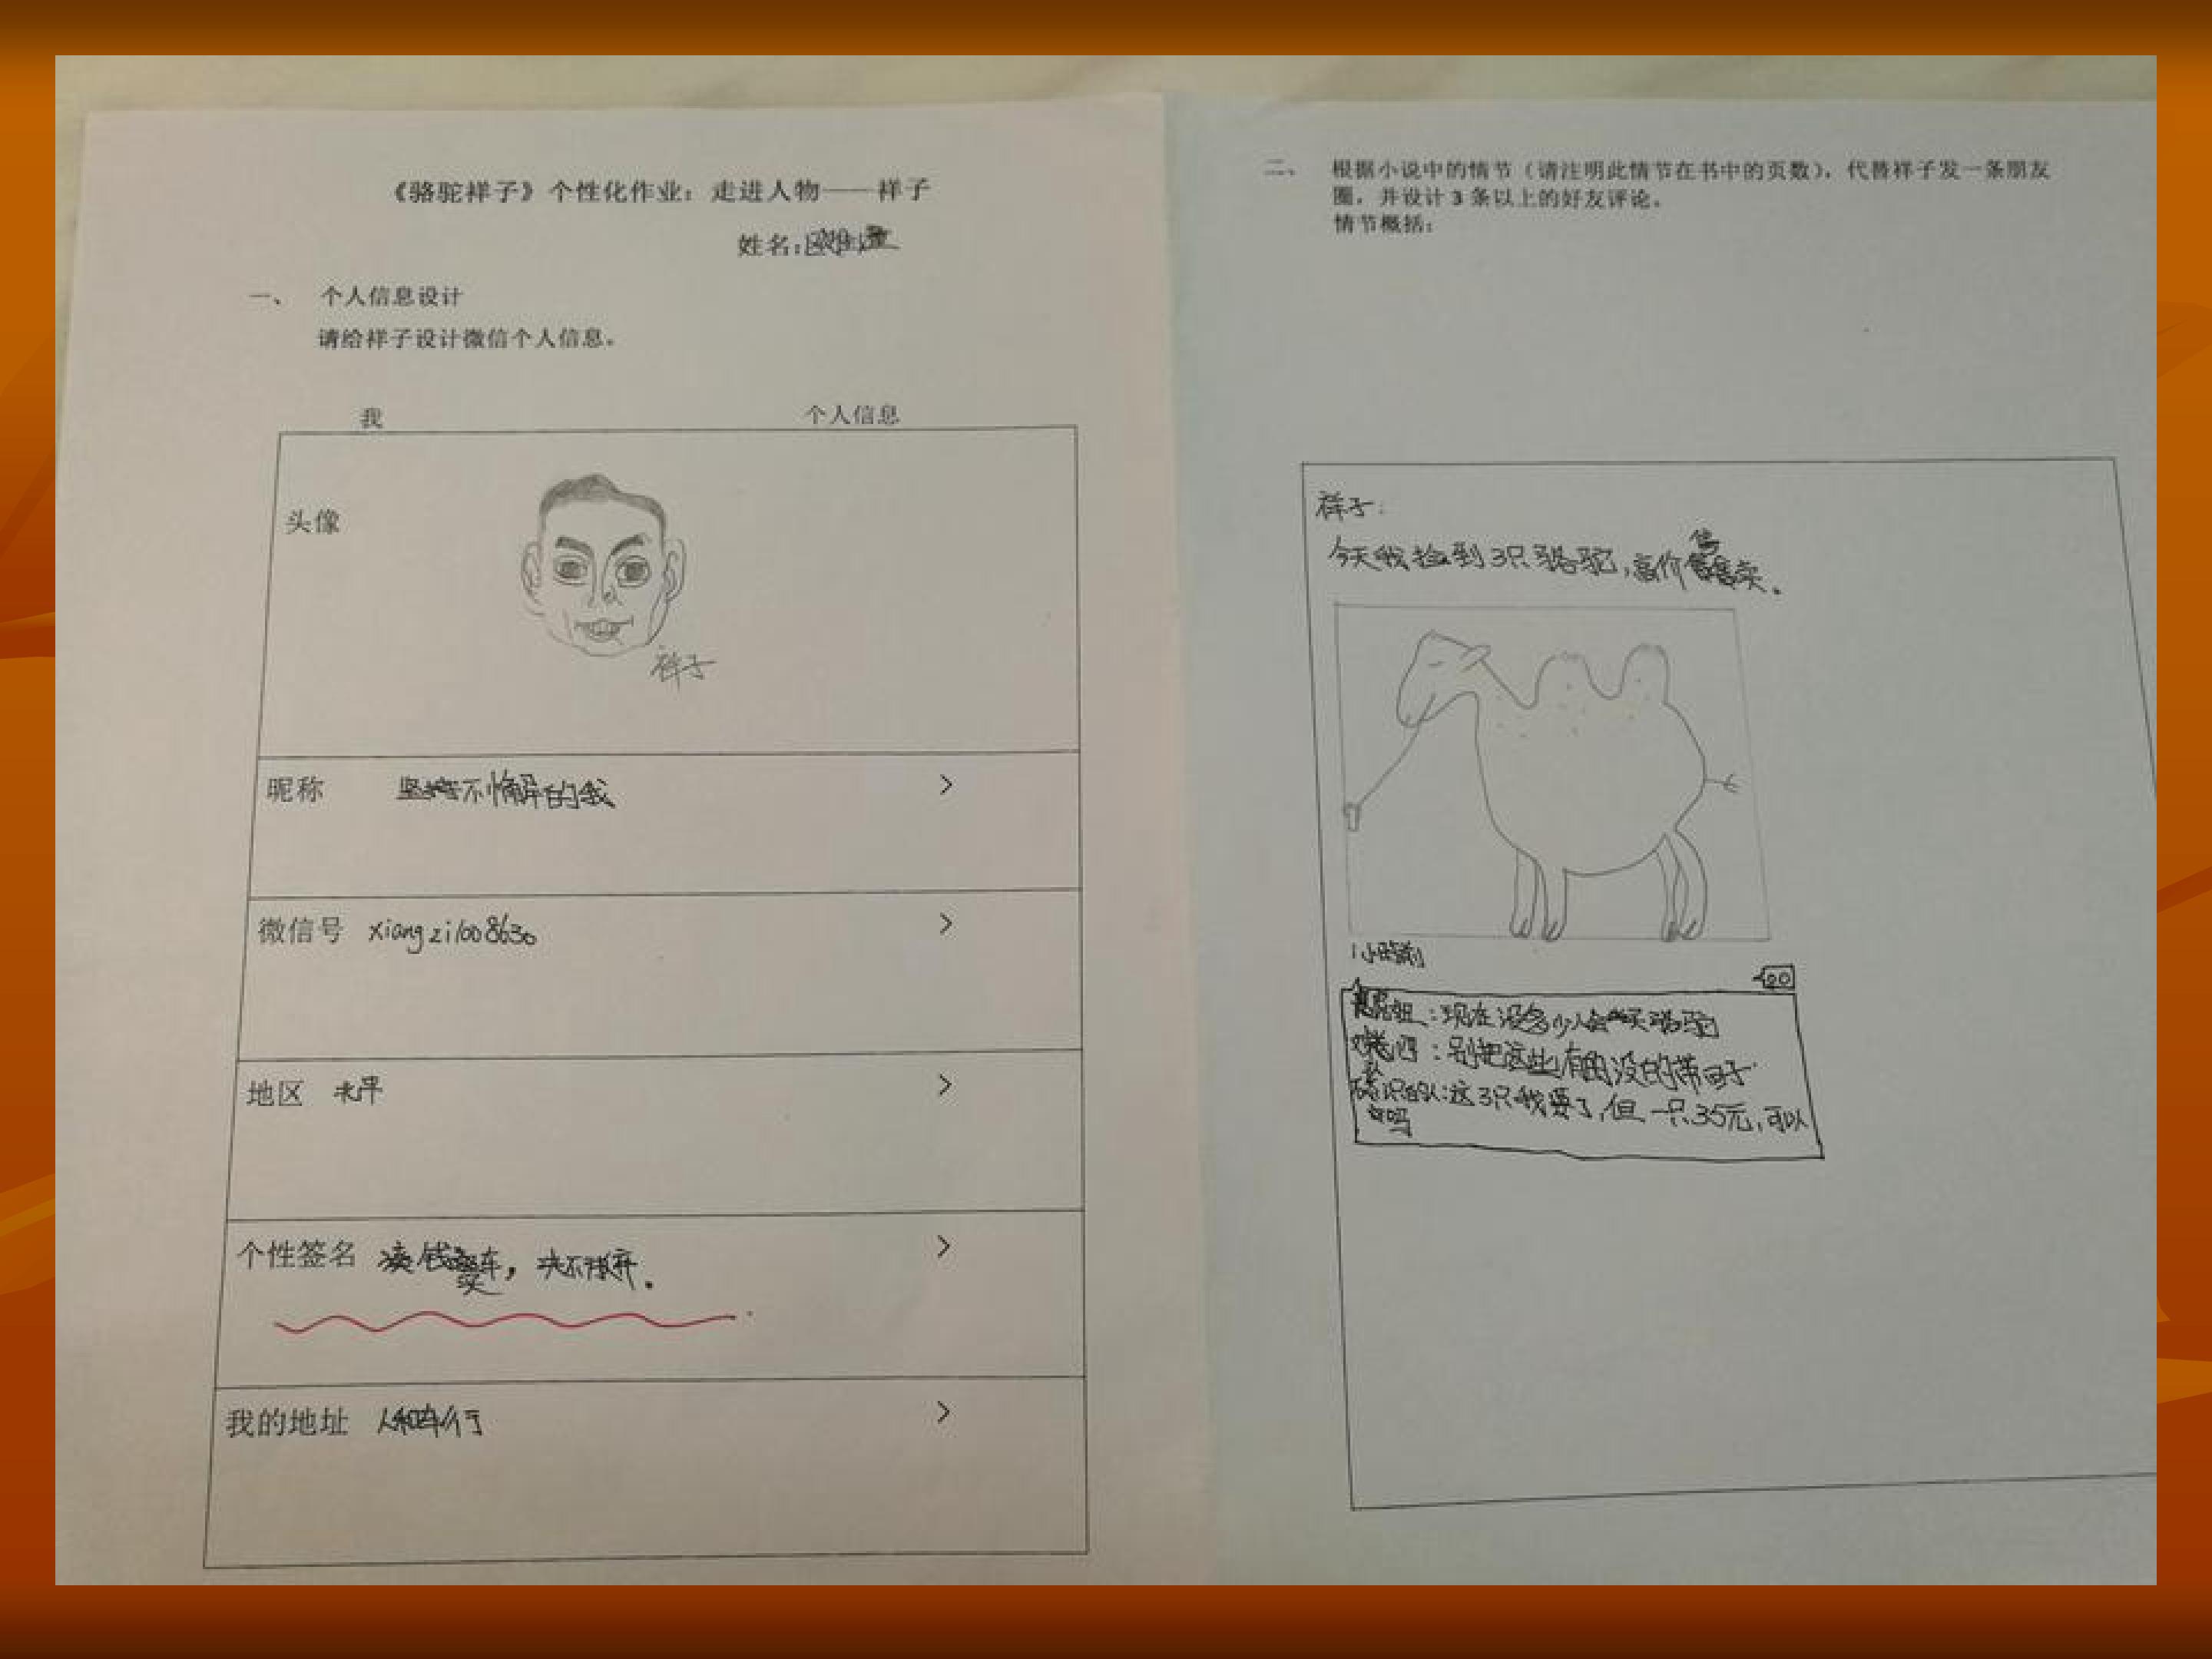 《骆驼祥子》个性化作业：走进人物——祥子
姓名:
一、 个人信息设计
请给祥子设计微信个人信息。
我 个人信息
头像
祥子
昵称 坚持不懈的我 >
微信号 xiangzi1008630 >
地区 北平 >
个性签名 凑钱买车，决不放弃。 >
我的地址 人和车行 >
二、 根据小说中的情节（请注明此情节在书中的页数），代替祥子发一条朋友
圈，并设计 3 条以上的好友评论。
情节概括：
祥子：
今天我捡到3只骆驼，高价售卖。
1小时前
20
虎妞：现在没多少人会买骆驼
刘四：别把这些有的没的带回子
不认识的人：这3只我要了，但一只35元，可以
吗